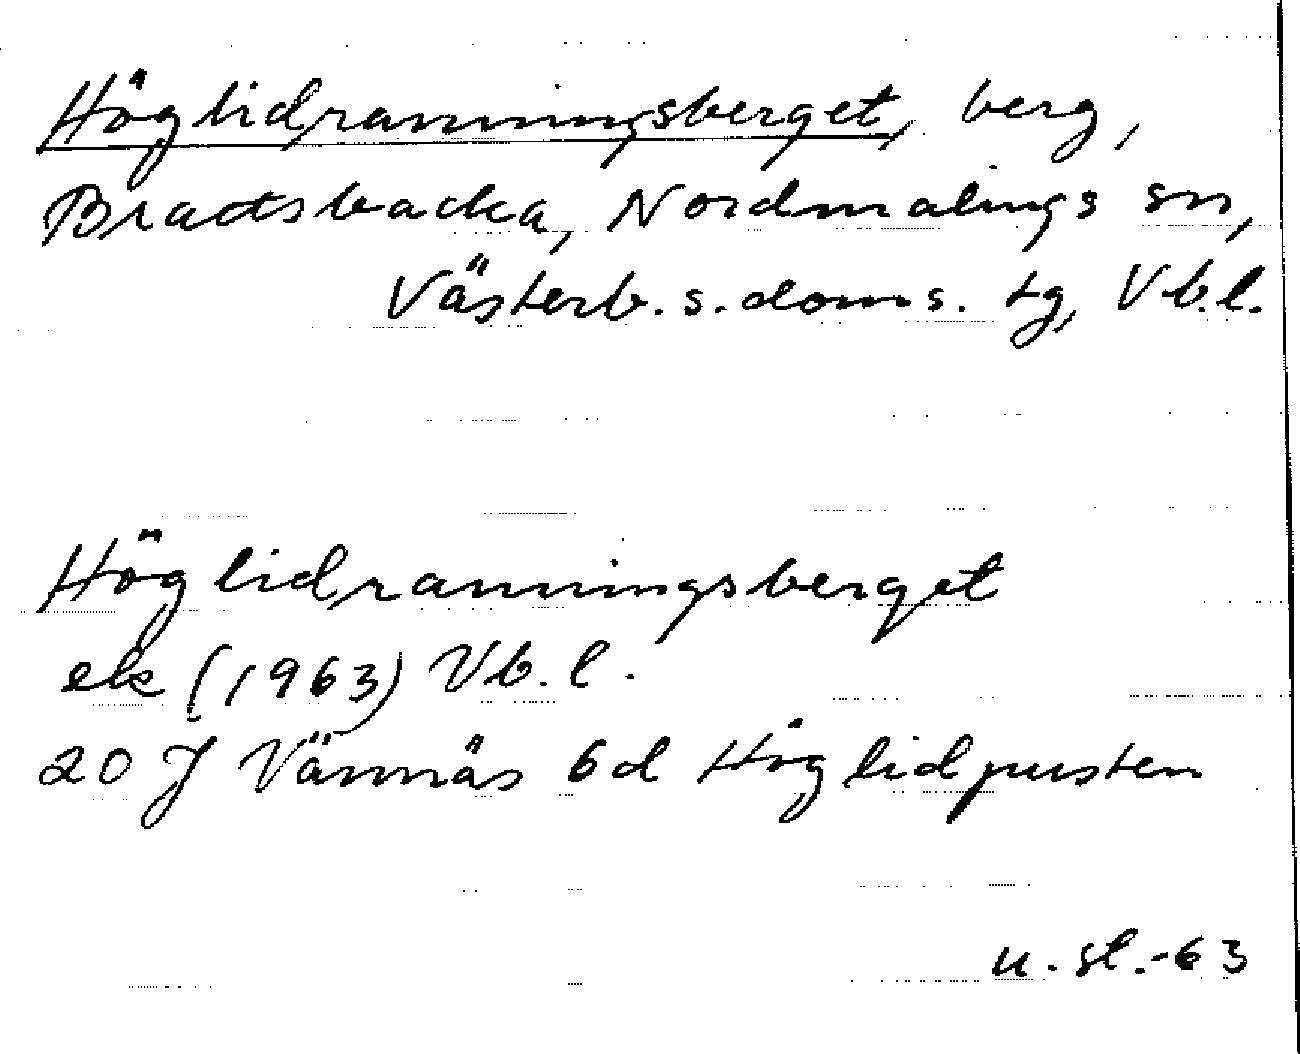 Höglidranningsberget, berg,
Brattsbacka, Nordmalings sn,
Västerb. s. doms. tg, Vb.l.
Höglidranningsberget
ek (1963) Vb. l.
20 J Vännäs 6d Höglidpusten
u. st.-63